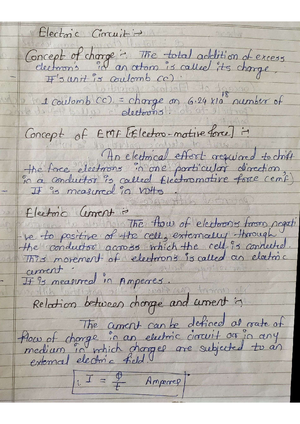 Electric Circuit :-
Concept of charge :- The total addition of excess
electrons in an atom is called its charge.
It's unit is coulomb (c).
1 coulomb (c). = charge on 6.24 x 10^18 number of
electrons
Concept of EMF [Electro-motive force] :-
An electrical effort required to drift
the free electrons in one particular direction
in a conductor is called Electromotive force (emf).
It is measured in Volts.
Electric Current :-
The flow of electrons from negati
ve to positive of the cell, externally through
the conductor across which the cell is connected.
This movement of electrons is called an electric
current.
It is measured in Amperes.
Relation between charge and current :-
The current can be defined as rate of
flow of charge in an electric circuit or in any
medium in which charges are subjected to an
external electric field
∴ I = Q/t Amperes